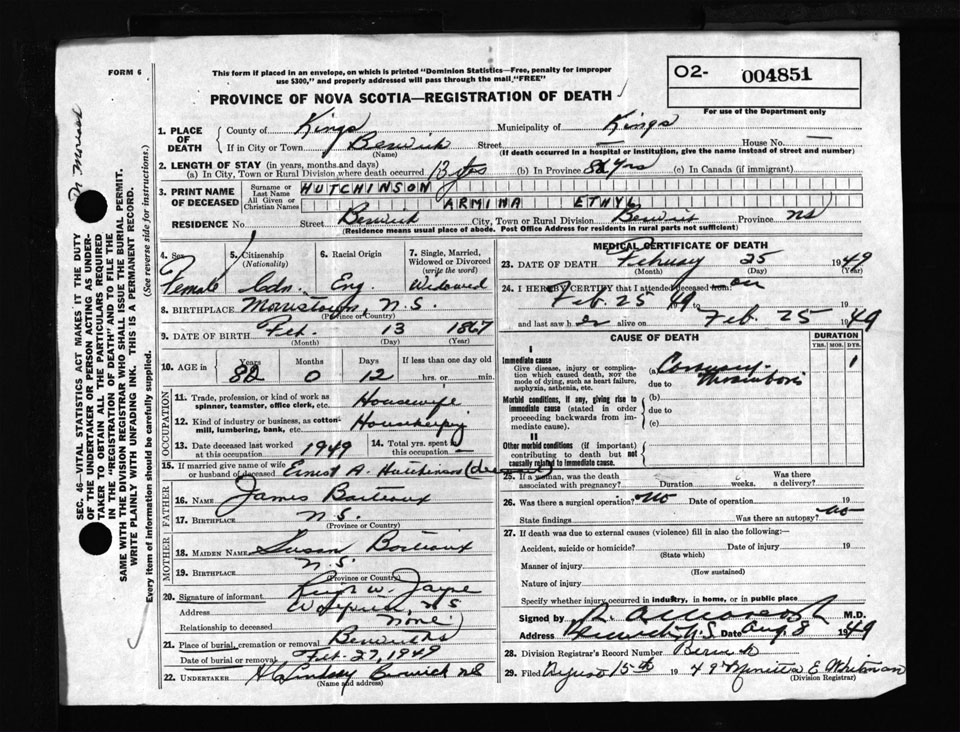 FORM 6
This form if placed in an envelope, on which is printed "Dominion Statistics—Free, penalty for improper
use $300," and properly addressed will pass through the mail, "FREE"
O2- 004851
For use of the Department only
PROVINCE OF NOVA SCOTIA—REGISTRATION OF DEATH
1. PLACE OF DEATH
County of Kings Municipality of Kings
If in City or Town Berwick Street — House No. —
(Name) (If death occurred in a hospital or institution, give the name instead of street and number)
2. LENGTH OF STAY (in years, months and days)
(a) In City, Town or Rural Division where death occurred 13 yrs (b) In Province 82 yrs (c) In Canada (if immigrant)
3. PRINT NAME OF DECEASED
Surname or Last Name HUTCHINSON
All Given or Christian Names ARMINA ETHYL
RESIDENCE No. Street Berwick City, Town or Rural Division Berwick Province NS
(Residence means usual place of abode. Post Office Address for residents in rural parts not sufficient)
4. Sex Female
5. Citizenship (Nationality) Cdn.
6. Racial Origin Eng.
7. Single, Married, Widowed or Divorced (write the word) Widowed
8. BIRTHPLACE Morristown, N.S.
(Province or Country)
9. DATE OF BIRTH Feb. 13 1867
(Month) (Day) (Year)
10. AGE in Years 82 Months 0 Days 12 If less than one day old hrs. or min.
OCCUPATION
11. Trade, profession, or kind of work as spinner, teamster, office clerk, etc. Housewife
12. Kind of industry or business, as cotton-mill, lumbering, bank, etc. Housekeeping
13. Date deceased last worked at this occupation 1949
14. Total yrs. spent in this occupation —
15. If married give name of wife or husband of deceased Ernest A. Hutchinson (deceased)
FATHER
16. NAME James
17. BIRTHPLACE N.S.
(Province or Country)
MOTHER
18. MAIDEN NAME Susan
19. BIRTHPLACE N.S.
(Province or Country)
20. Signature of informant W. Jayne
Address N S
Relationship to deceased None
21. Place of burial, cremation or removal Berwick NS
Date of burial or removal Feb. 27, 1949
22. UNDERTAKER Lindsay Berwick NS
(Name and address)
MEDICAL CERTIFICATE OF DEATH
23. DATE OF DEATH February 25 1949
(Month) (Day) (Year)
24. I HEREBY CERTIFY that I attended deceased from: on
Feb. 25 49 19 19
and last saw her alive on Feb. 25 1949
CAUSE OF DEATH
DURATION
YRS. MOS. DYS.
I
Immediate cause
Give disease, injury or complication which caused death, NOT the mode of dying, such as heart failure, asphyxia, asthenia, etc.
(a) Coronary Thrombosis 1
due to
Morbid conditions, if any, giving rise to immediate cause (stated in order proceeding backwards from immediate cause).
(b)
due to
(c)
II
Other morbid conditions (if important) contributing to death but not causally related to immediate cause.
25. If a woman, was the death associated with pregnancy? Duration weeks. Was there a delivery?
26. Was there a surgical operation? No Date of operation 19
State findings Was there an autopsy? No
27. If death was due to external causes (violence) fill in also the following:—
Accident, suicide or homicide? Date of injury 19
(State which)
Manner of injury
(How sustained)
Nature of injury
Specify whether injury occurred in industry, in home, or in public place
Signed by M.D.
Address Berwick, N.S. Date Aug 8 1949
28. Division Registrar's Record Number Berwick
29. Filed August 15th 1949 E. Whitman
(Division Registrar)
SEC. 46—VITAL STATISTICS ACT MAKES IT THE DUTY
OF THE UNDERTAKER OR PERSON ACTING AS UNDER-
TAKER TO OBTAIN ALL THE PARTICULARS REQUIRED
IN THE "REGISTRATION OF DEATH" AND TO FILE THE
SAME WITH THE DIVISION REGISTRAR WHO SHALL ISSUE THE BURIAL PERMIT.
WRITE PLAINLY WITH UNFADING INK. THIS IS A PERMANENT RECORD.
Every item of information should be carefully supplied. (See reverse side for instructions.)